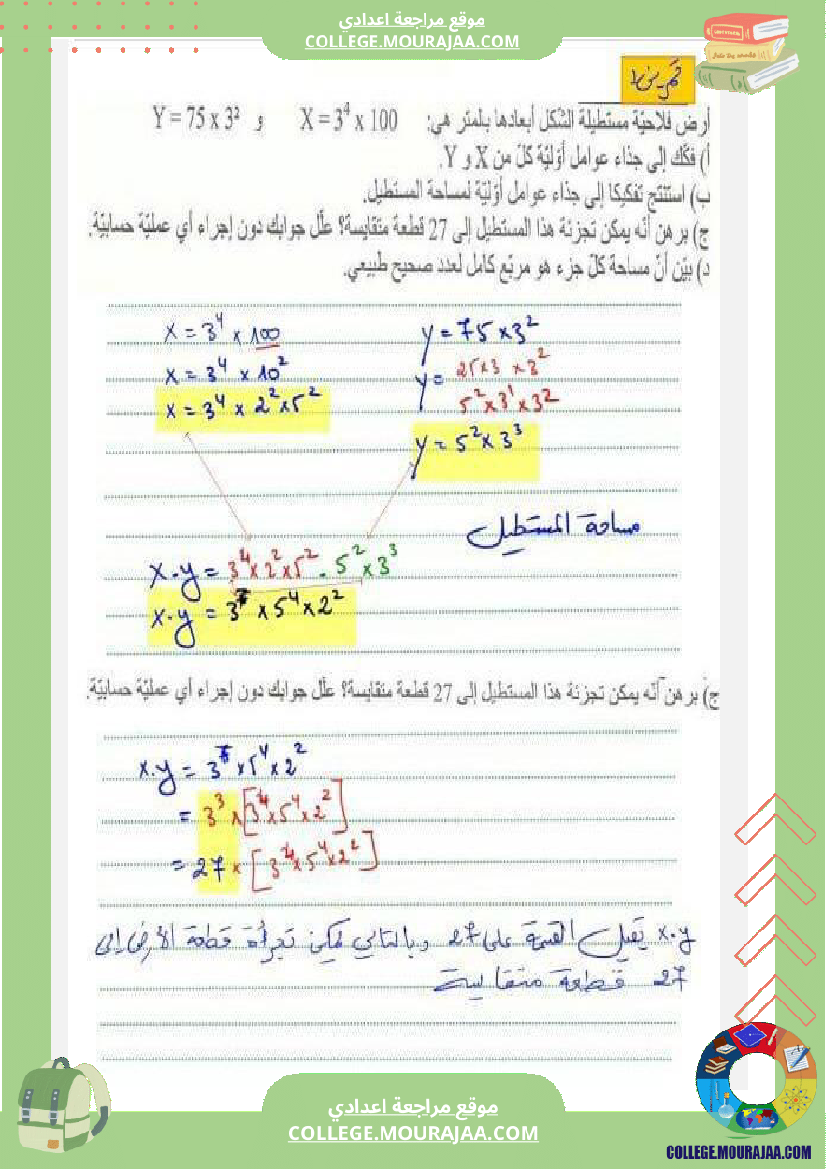 موقع مراجعة اعدادي
COLLEGE.MOURAJAA.COM
أرض فلاحيّة مستطيلة الشكل أبعادها بالمتر هي: X = 3⁴ x 100 و Y = 75 x 3²
أ) فكّك إلى جذاء عوامل أوّليّة كلّ من X و Y.
ب) استنتج تفكيكا إلى جذاء عوامل أوّليّة لمساحة المستطيل.
ج) برهن أنّه يمكن تجزئة هذا المستطيل إلى 27 قطعة متقايسة؟ علّل جوابك دون إجراء أي عمليّة حسابيّة.
د) بيّن أنّ مساحة كلّ جزء هو مربّع كامل لعدد صحيح طبيعي.
X = 3⁴ x 100
X = 3⁴ x 10²
X = 3⁴ x 2² x 5²
y = 75 x 3²
y = 25 x 3 x 3²
5² x 3¹ x 3²
y = 5² x 3³
مساحة المستطيل
X . y = 3⁴ x 2² x 5² . 5² x 3³
X . y = 3⁷ x 5⁴ x 2²
ج) برهن أنّه يمكن تجزئة هذا المستطيل إلى 27 قطعة متقايسة؟ علّل جوابك دون إجراء أي عمليّة حسابيّة.
X . y = 3⁷ x 5⁴ x 2²
= 3³ x [3⁴ x 5⁴ x 2²]
= 27 x [3⁴ x 5⁴ x 2²]
X . y يقبل القسمة على 27 وبالتالي يمكن تجزأة قطعة الأرض إلى
27 قطعة متقايسة
موقع مراجعة اعدادي
COLLEGE.MOURAJAA.COM
COLLEGE.MOURAJAA.COM